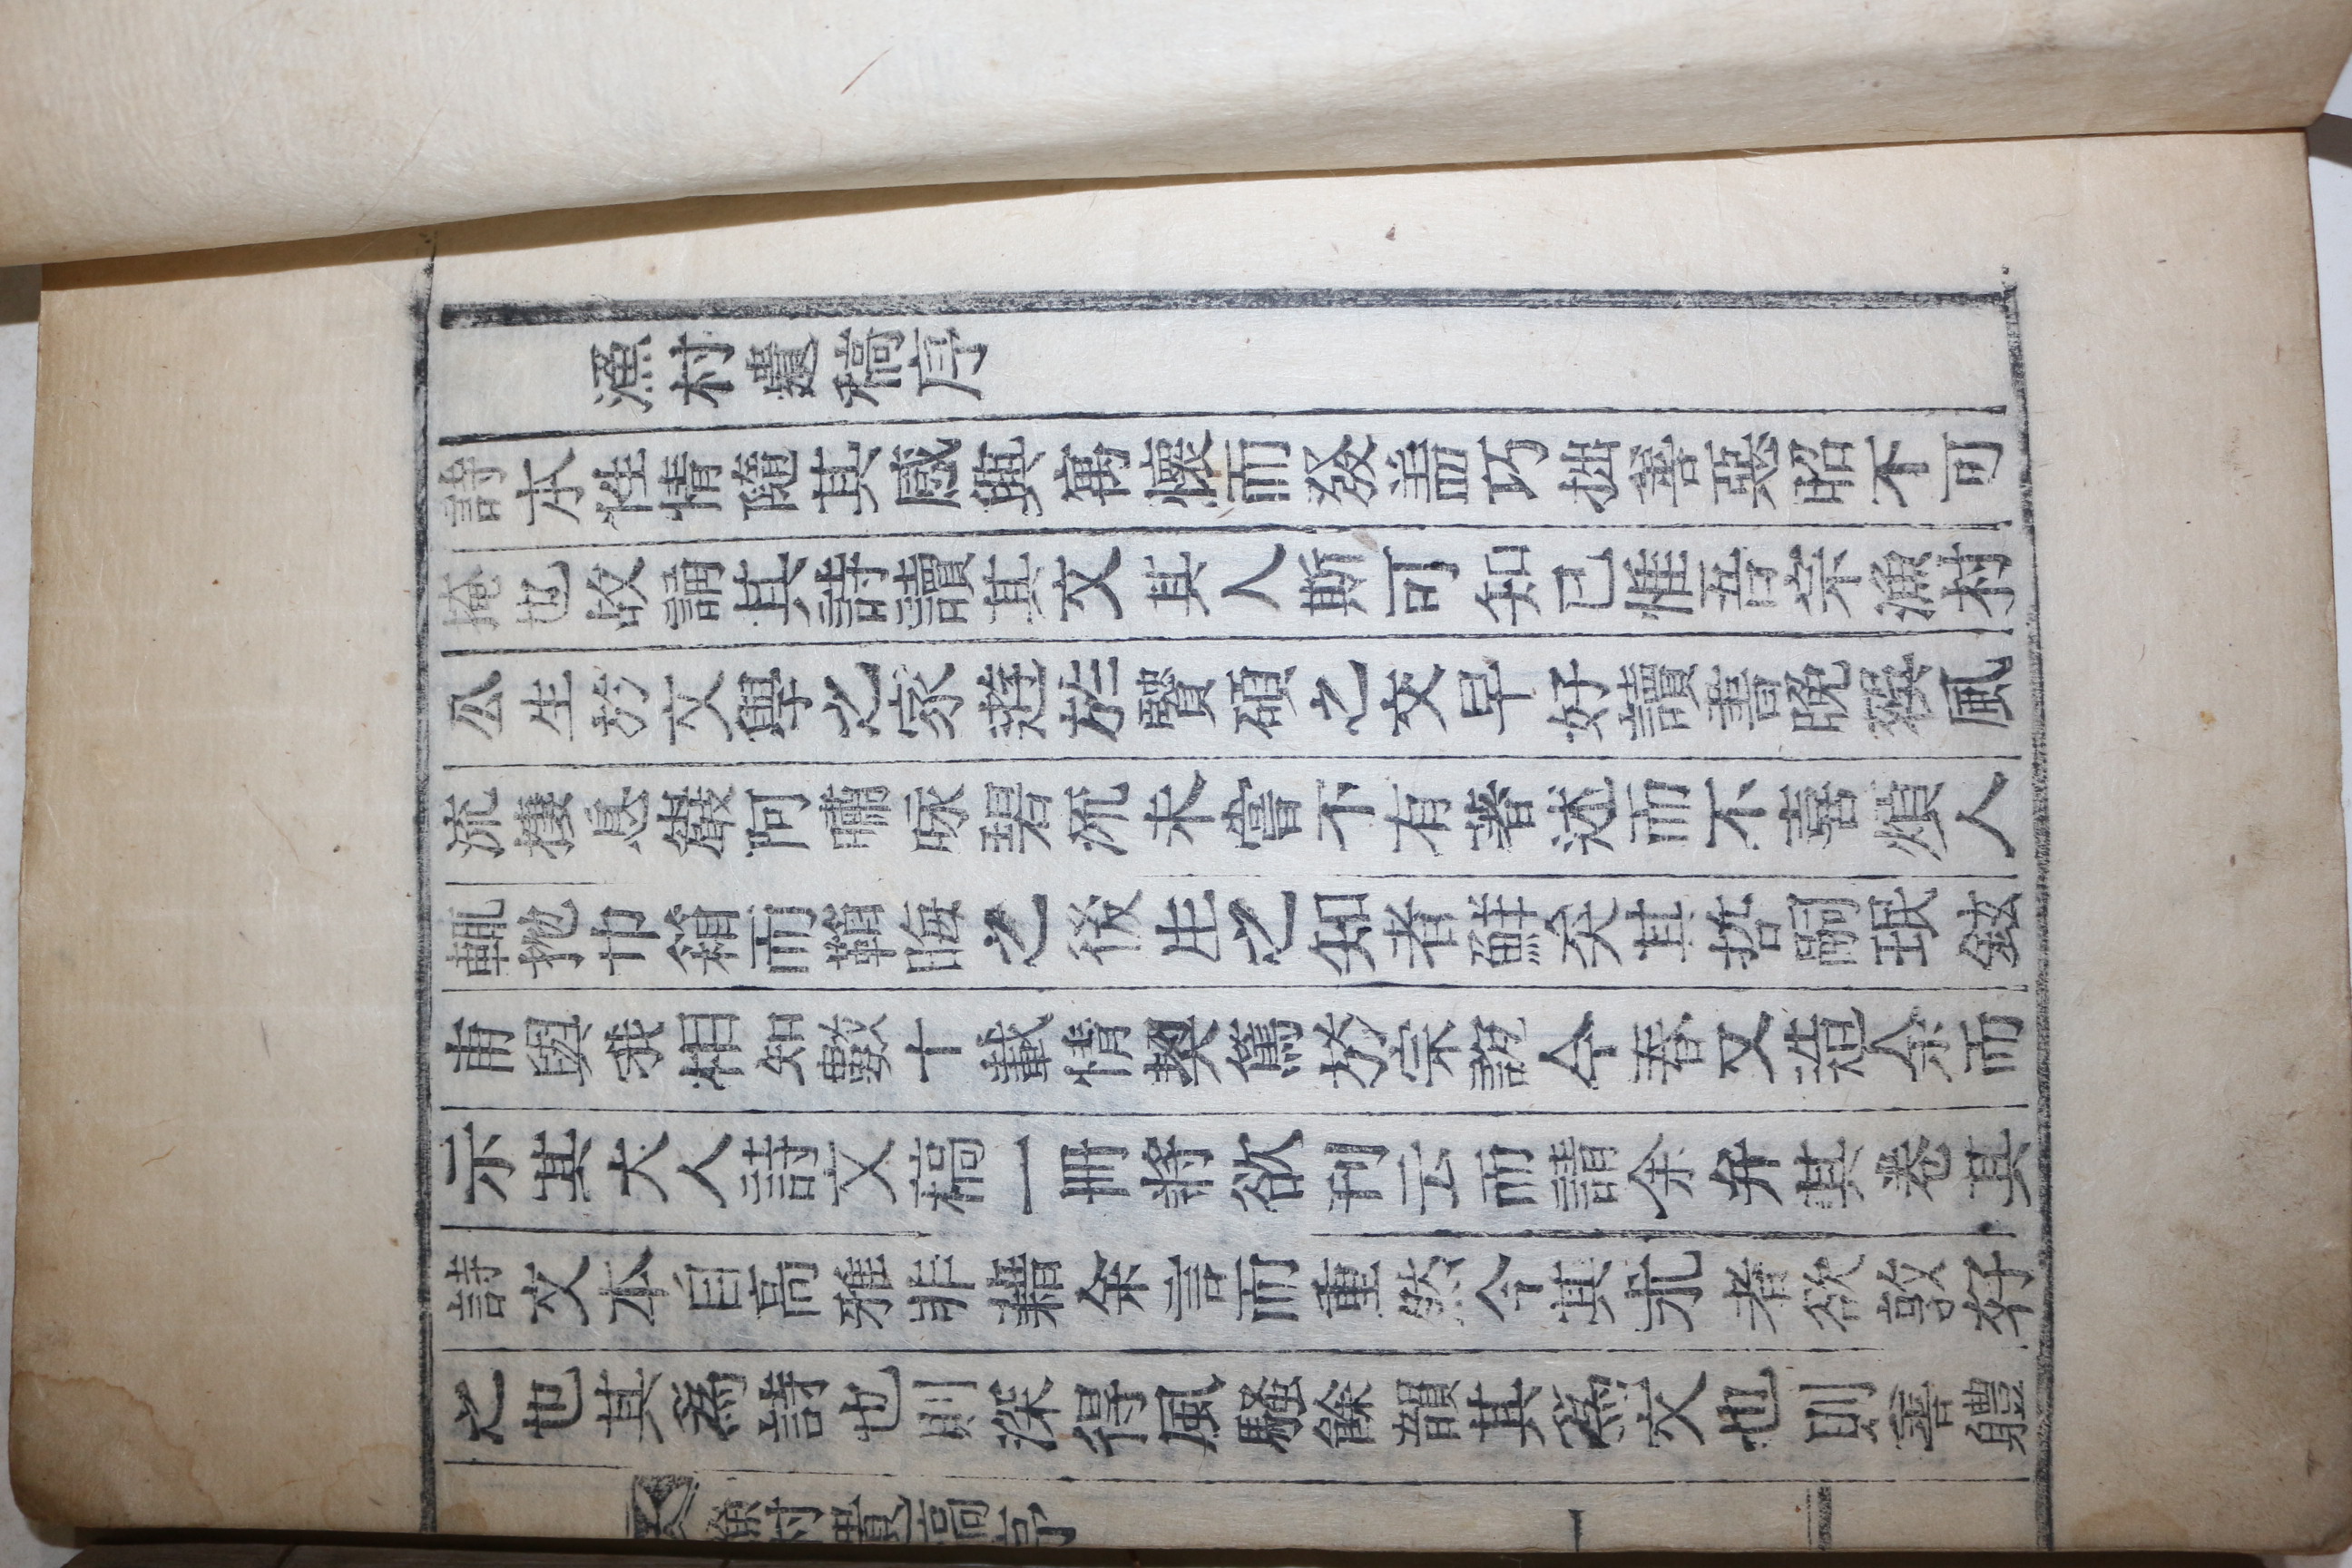 漁村遺稿序
詩本性情隨其感興寓懷而發盖巧拙善惡昭不可
掩也故誦其詩讀其文其人斯可知已惟吾宗漁村
公生於文學之家遊於賢碩之交早好讀書晩樂風
流棲息巖阿嘯咏碧流未嘗不有著述而不喜煩人
輒抛巾箱而韜晦之後生之知者鮮矣其抬嗣珉鉉
甫與我相知數十載情槩篤於宗誼今春又造余而
示其大人詩文稿一冊將欲刊云而請余弁其卷其
詩文本自高雅非藉余言而重然今其求者欲敦好
之也其爲詩也則深得風騷餘韻其爲文也則善體
漁村遺稿序 一